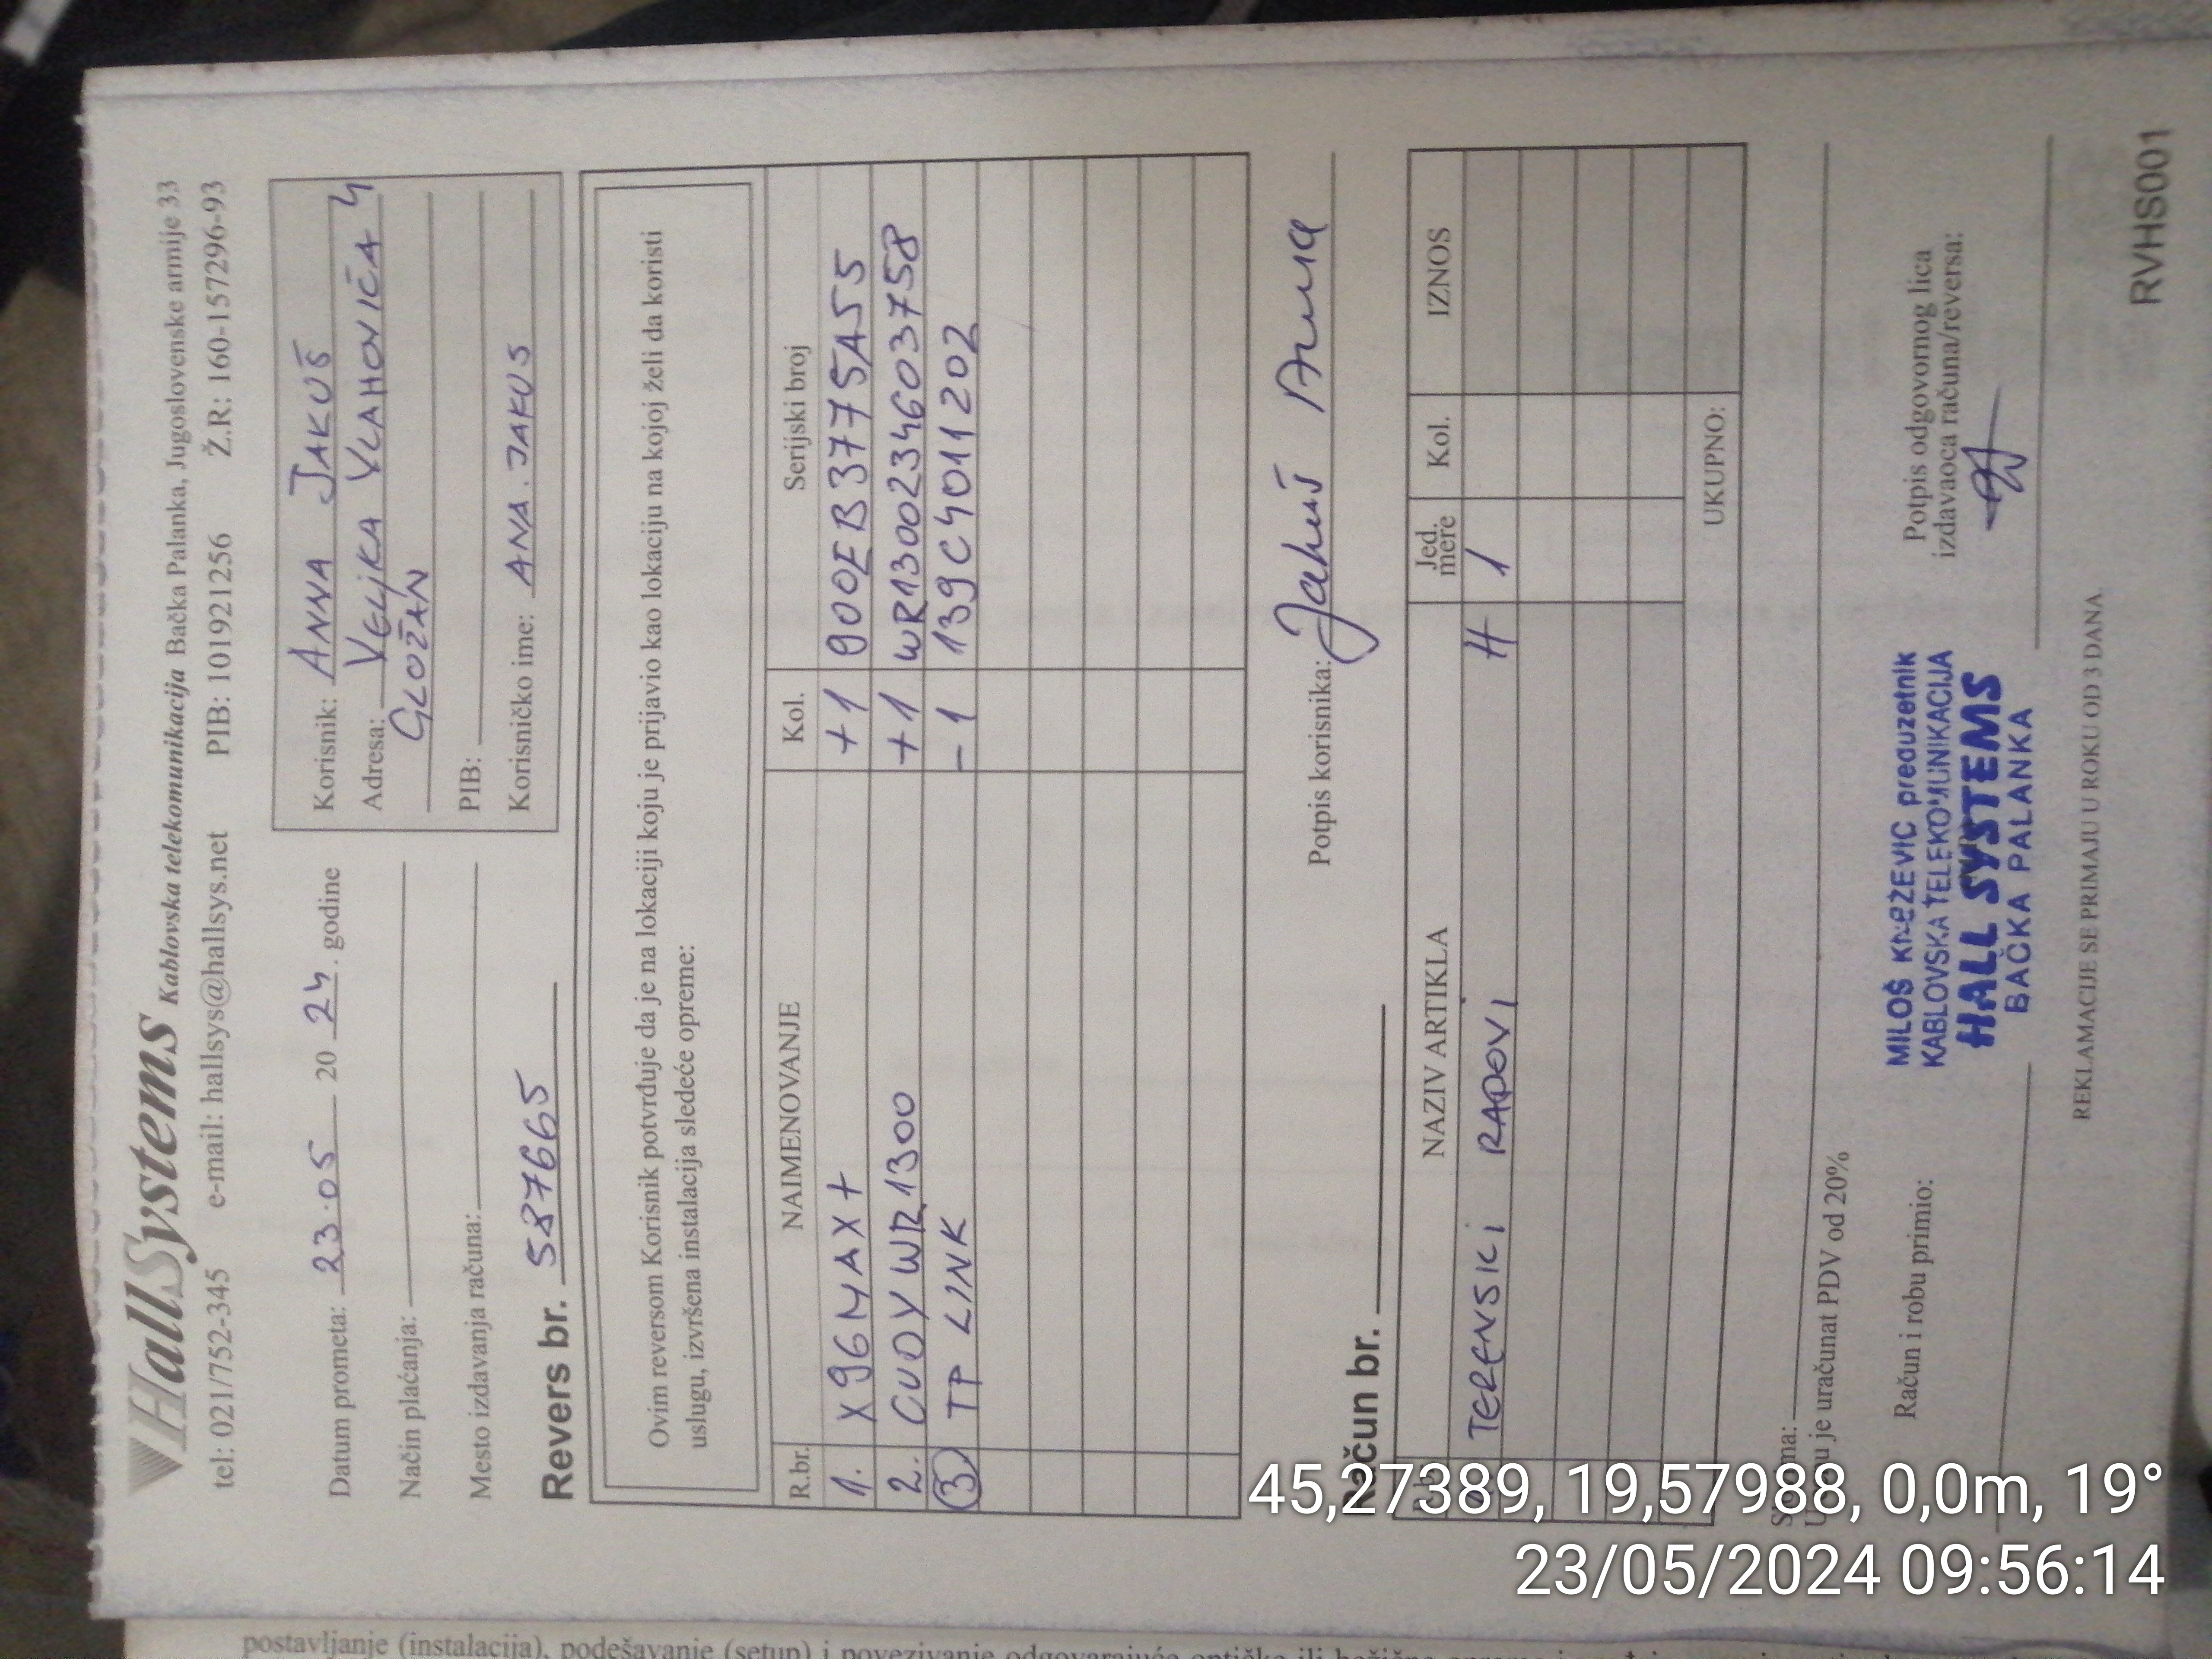 HallSystems Kablovska telekomunikacija Bačka Palanka, Jugoslovenske armije 33
tel: 021/752-345 e-mail: hallsys@hallsys.net PIB: 101921256 Ž.R: 160-157296-93
Datum prometa: 23.05 20 24. godine
Način plaćanja:
Mesto izdavanja računa:
Revers br. 587665
Korisnik: ANNA JAKUŠ
Adresa: VELJKA VLAHOVIĆA 4
GLOŽAN
PIB:
Korisničko ime: ANA.JAKUS
Ovim reversom Korisnik potvrđuje da je na lokaciji koju je prijavio kao lokaciju na kojoj želi da koristi
uslugu, izvršena instalacija sledeće opreme:
R.br. NAIMENOVANJE Kol. Serijski broj
1. X96MAX+ +1 900EB3775A55
2. CUDY WR1300 +1 WR1300234603758
3 TP LINK -1 139C4011202
Potpis korisnika: Jakuš Anna
Račun br.
NAZIV ARTIKLA Jed. mere Kol. IZNOS
TERENSKI RADOVI H 1
UKUPNO:
U je uračunat PDV od 20%
Račun i robu primio:
MILOŠ KNEŽEVIĆ preduzetnik
KABLOVSKA TELEKOMUNIKACIJA
HALL SYSTEMS
BAČKA PALANKA
Potpis odgovornog lica
izdavaoca računa/reversa:
REKLAMACIJE SE PRIMAJU U ROKU OD 3 DANA
RVHS001
postavljanje (instalacija), podešavanje (setup) i povezivanje
45,27389, 19,57988, 0,0m, 19°
23/05/2024 09:56:14